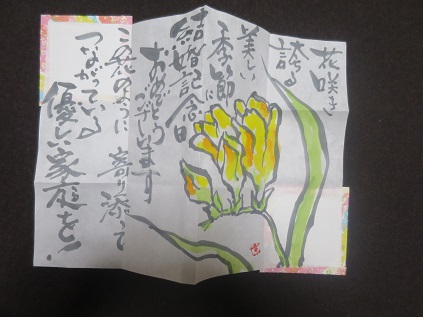 花咲き
誇る
美しい
季節に
結婚記念日
おめでとう
ございます
この花のように寄り添って
つながっている
優しい家庭を!